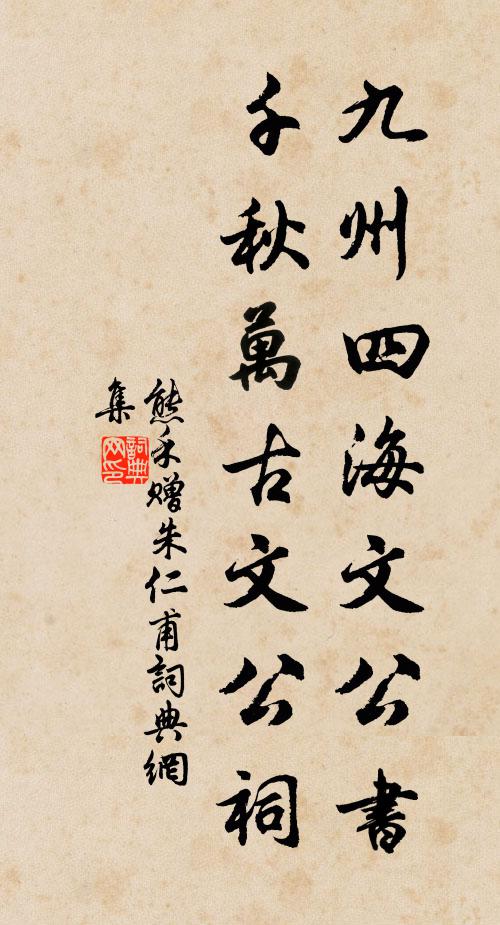 九州四海文公書
千秋萬古文公祠
熊禾贈朱仁甫詞典網
集
詞典
网印